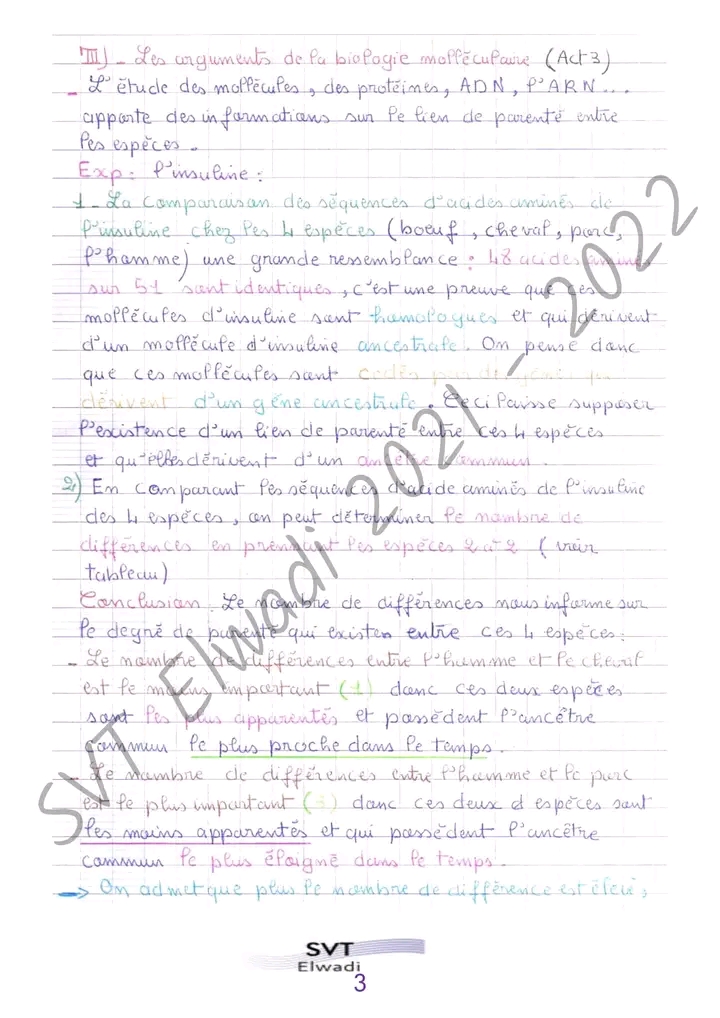 III) - Les arguments de la biologie molléculaire (Act 3)
- L'étude des mollécules, des protéines, ADN, l'ARN...
apporte des informations sur le lien de parenté entre
les espèces.
Exp: l'insuline:
1 - La comparaison des séquences d'acides aminés de
l'insuline chez les 4 espèces (boeuf, cheval, porc,
l'homme) une grande ressemblance: 48 acides aminés
sur 51 sont identiques, c'est une preuve que ces
mollécules d'insuline sont homologues et qui dérivent
d'un mollécule d'insuline ancestrale. On pense donc
que ces mollécules sont codés par de gènes qui
dérivent d'un gène ancestrale. Ceci laisse supposer
l'existence d'un lien de parenté entre ces 4 espèces
et qu'elles dérivent d'un ancêtre commun.
2) En comparant les séquences d'acide aminés de l'insuline
des 4 espèces, on peut déterminer le nombre de
différences en prennant les espèces 2 à 2 (voir
tableau)
Conclusion. Le nombre de différences nous informe sur
le degré de parenté qui existen entre ces 4 espèces:
- Le nombre de différences entre l'homme et le cheval
est le moins important (1) donc ces deux espèces
sont les plus apparentés et possèdent l'ancêtre
commun le plus proche dans le temps.
- Le nombre de différences entre l'homme et le porc
est le plus important (3) donc ces deux d espèces sont
les moins apparentés et qui possèdent l'ancêtre
commun le plus éloigné dans le temps.
→ On admet que plus le nombre de différence est élevé,
SVT Elwadi 2021 - 2022
SVT
Elwadi
3